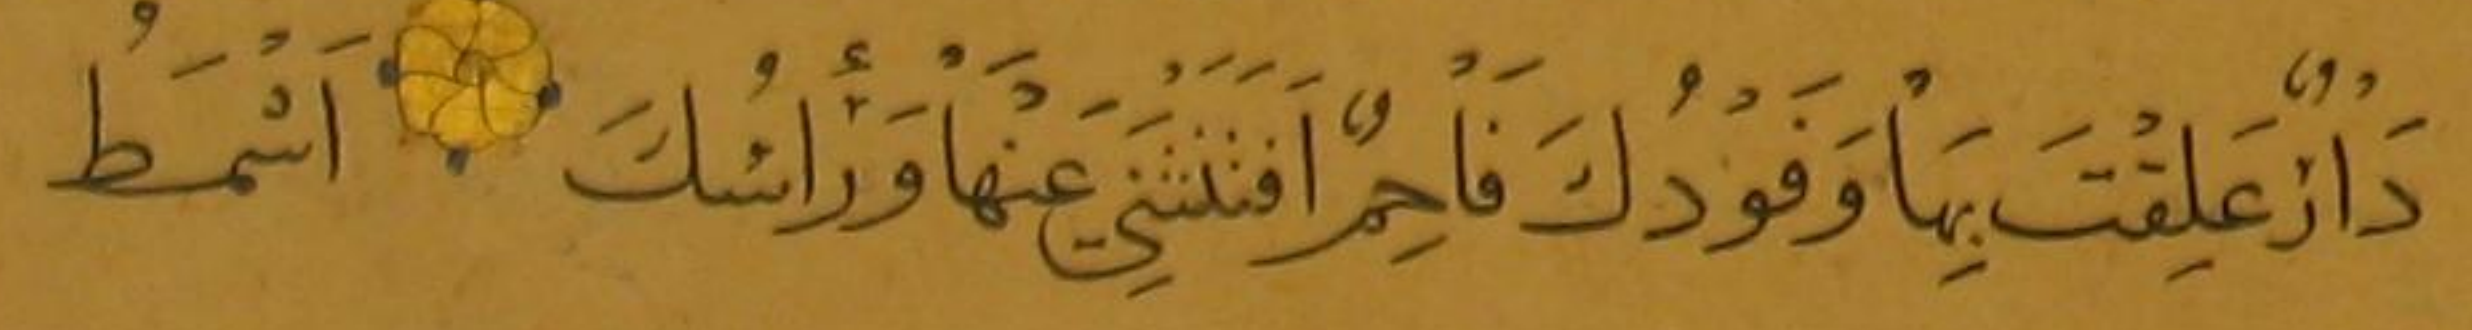 دَارٌ عَلِقْتَ بِهَا وَفَوْدُكَ فَاحِمٌ اَفَتَنْثَنِي عَنْهَا وَرَأْسُكَ اَشْمَطُ